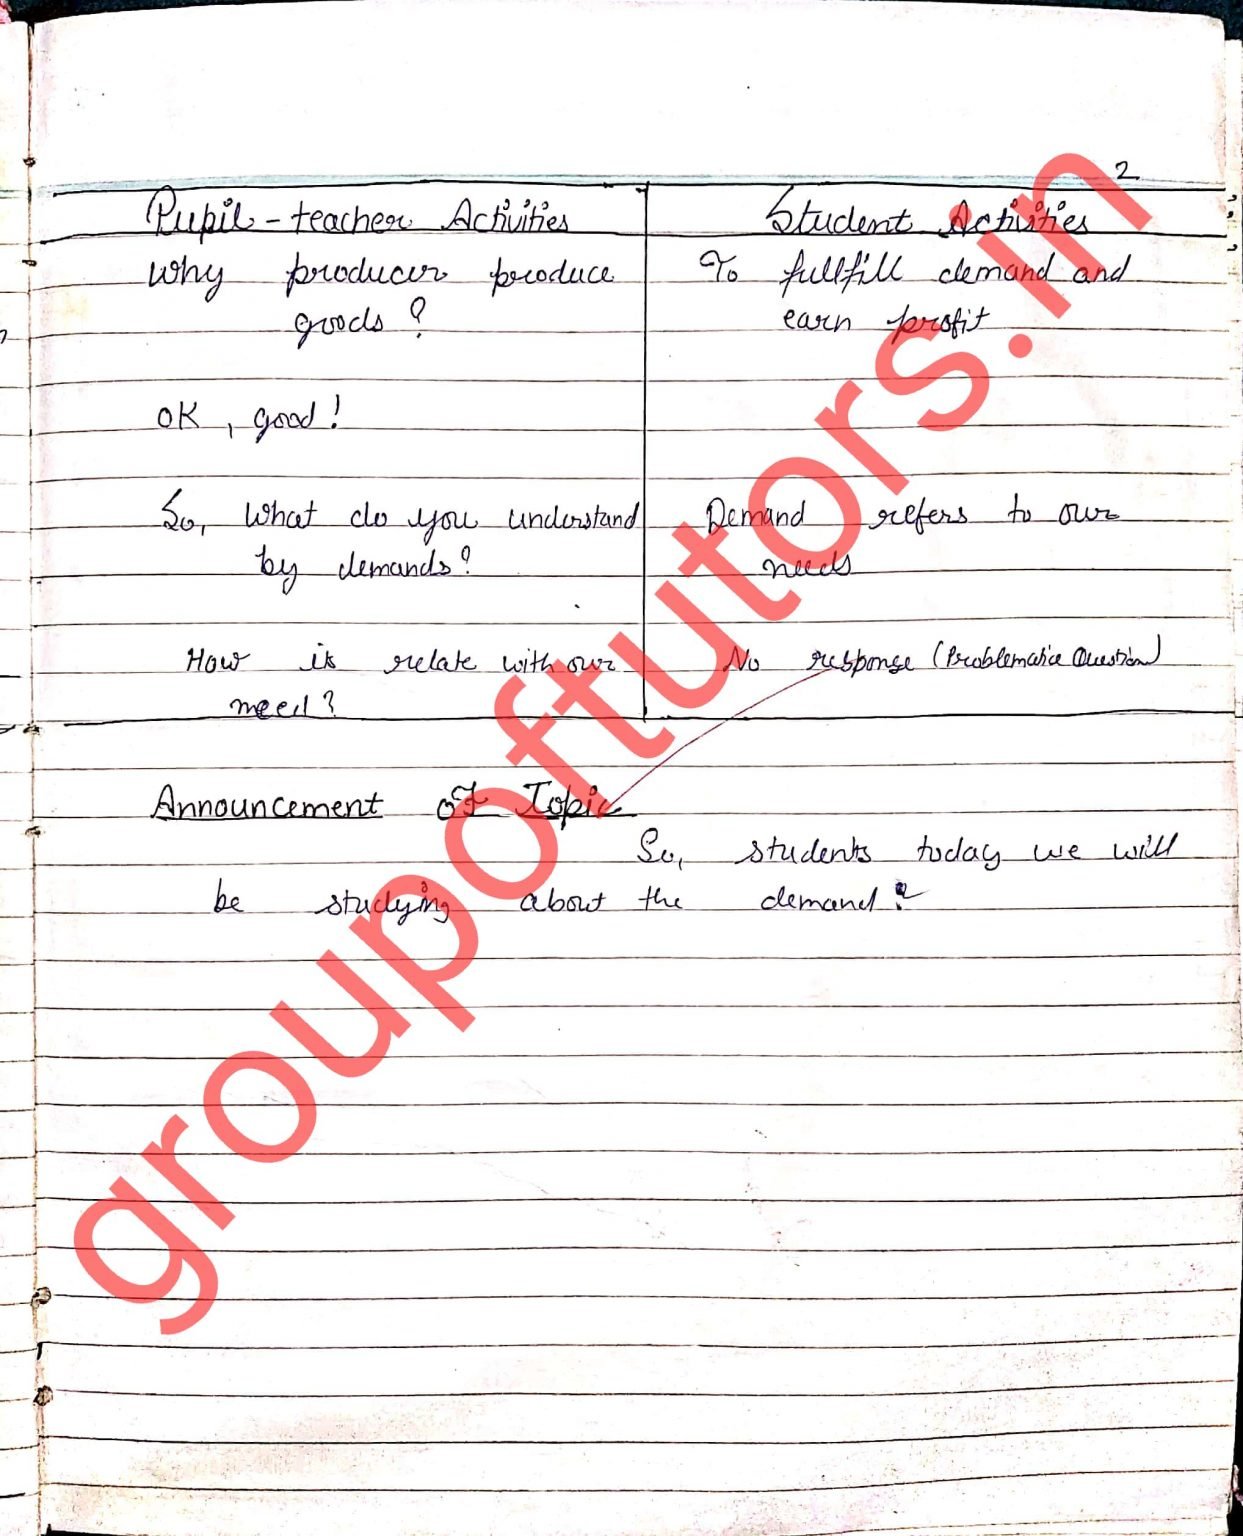 2
Pupil-teacher Activities
Student Activities
Why producer produce
goods?
To fullfill demand and
earn profit
OK, good!
So, What do you understand
by demands?
Demand refers to our
needs
How is relate with our
need?
No response (Problematice Question)
Announcement OF Topic
So, students today we will
be studying about the demand?
groupoftutors.in